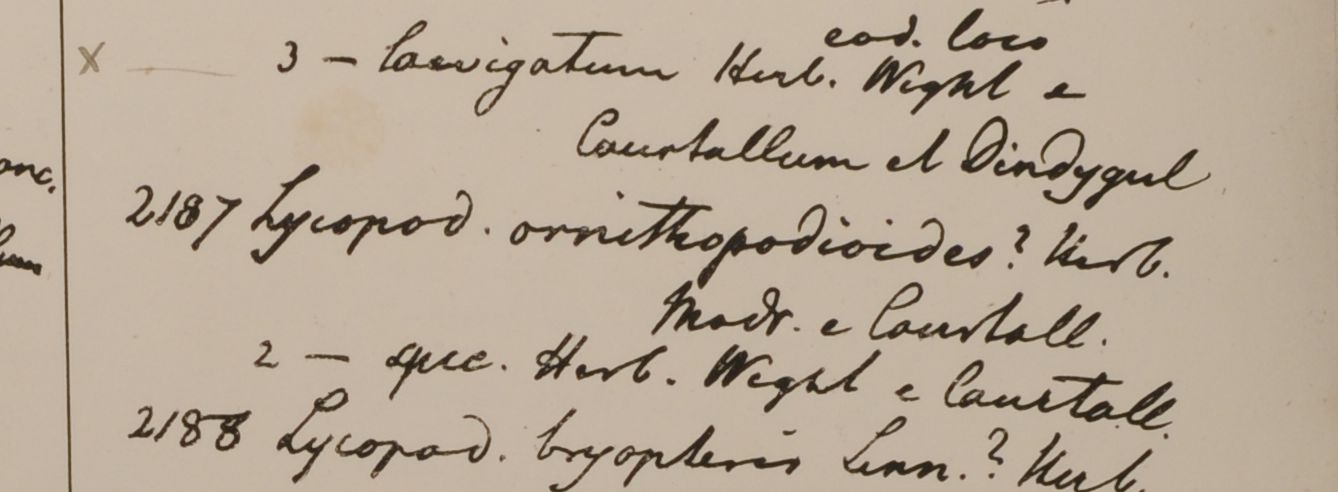 eod. loco
x 3 — laevigatum Herb. Wight e
Courtallum et Dindygul
2187 Lycopod. ornithopodioides? Herb.
Madr. e Courtall.
2 — spec. Herb. Wight e Courtall.
2188 Lycopod. bryopteris Linn.? Herb.
onc.